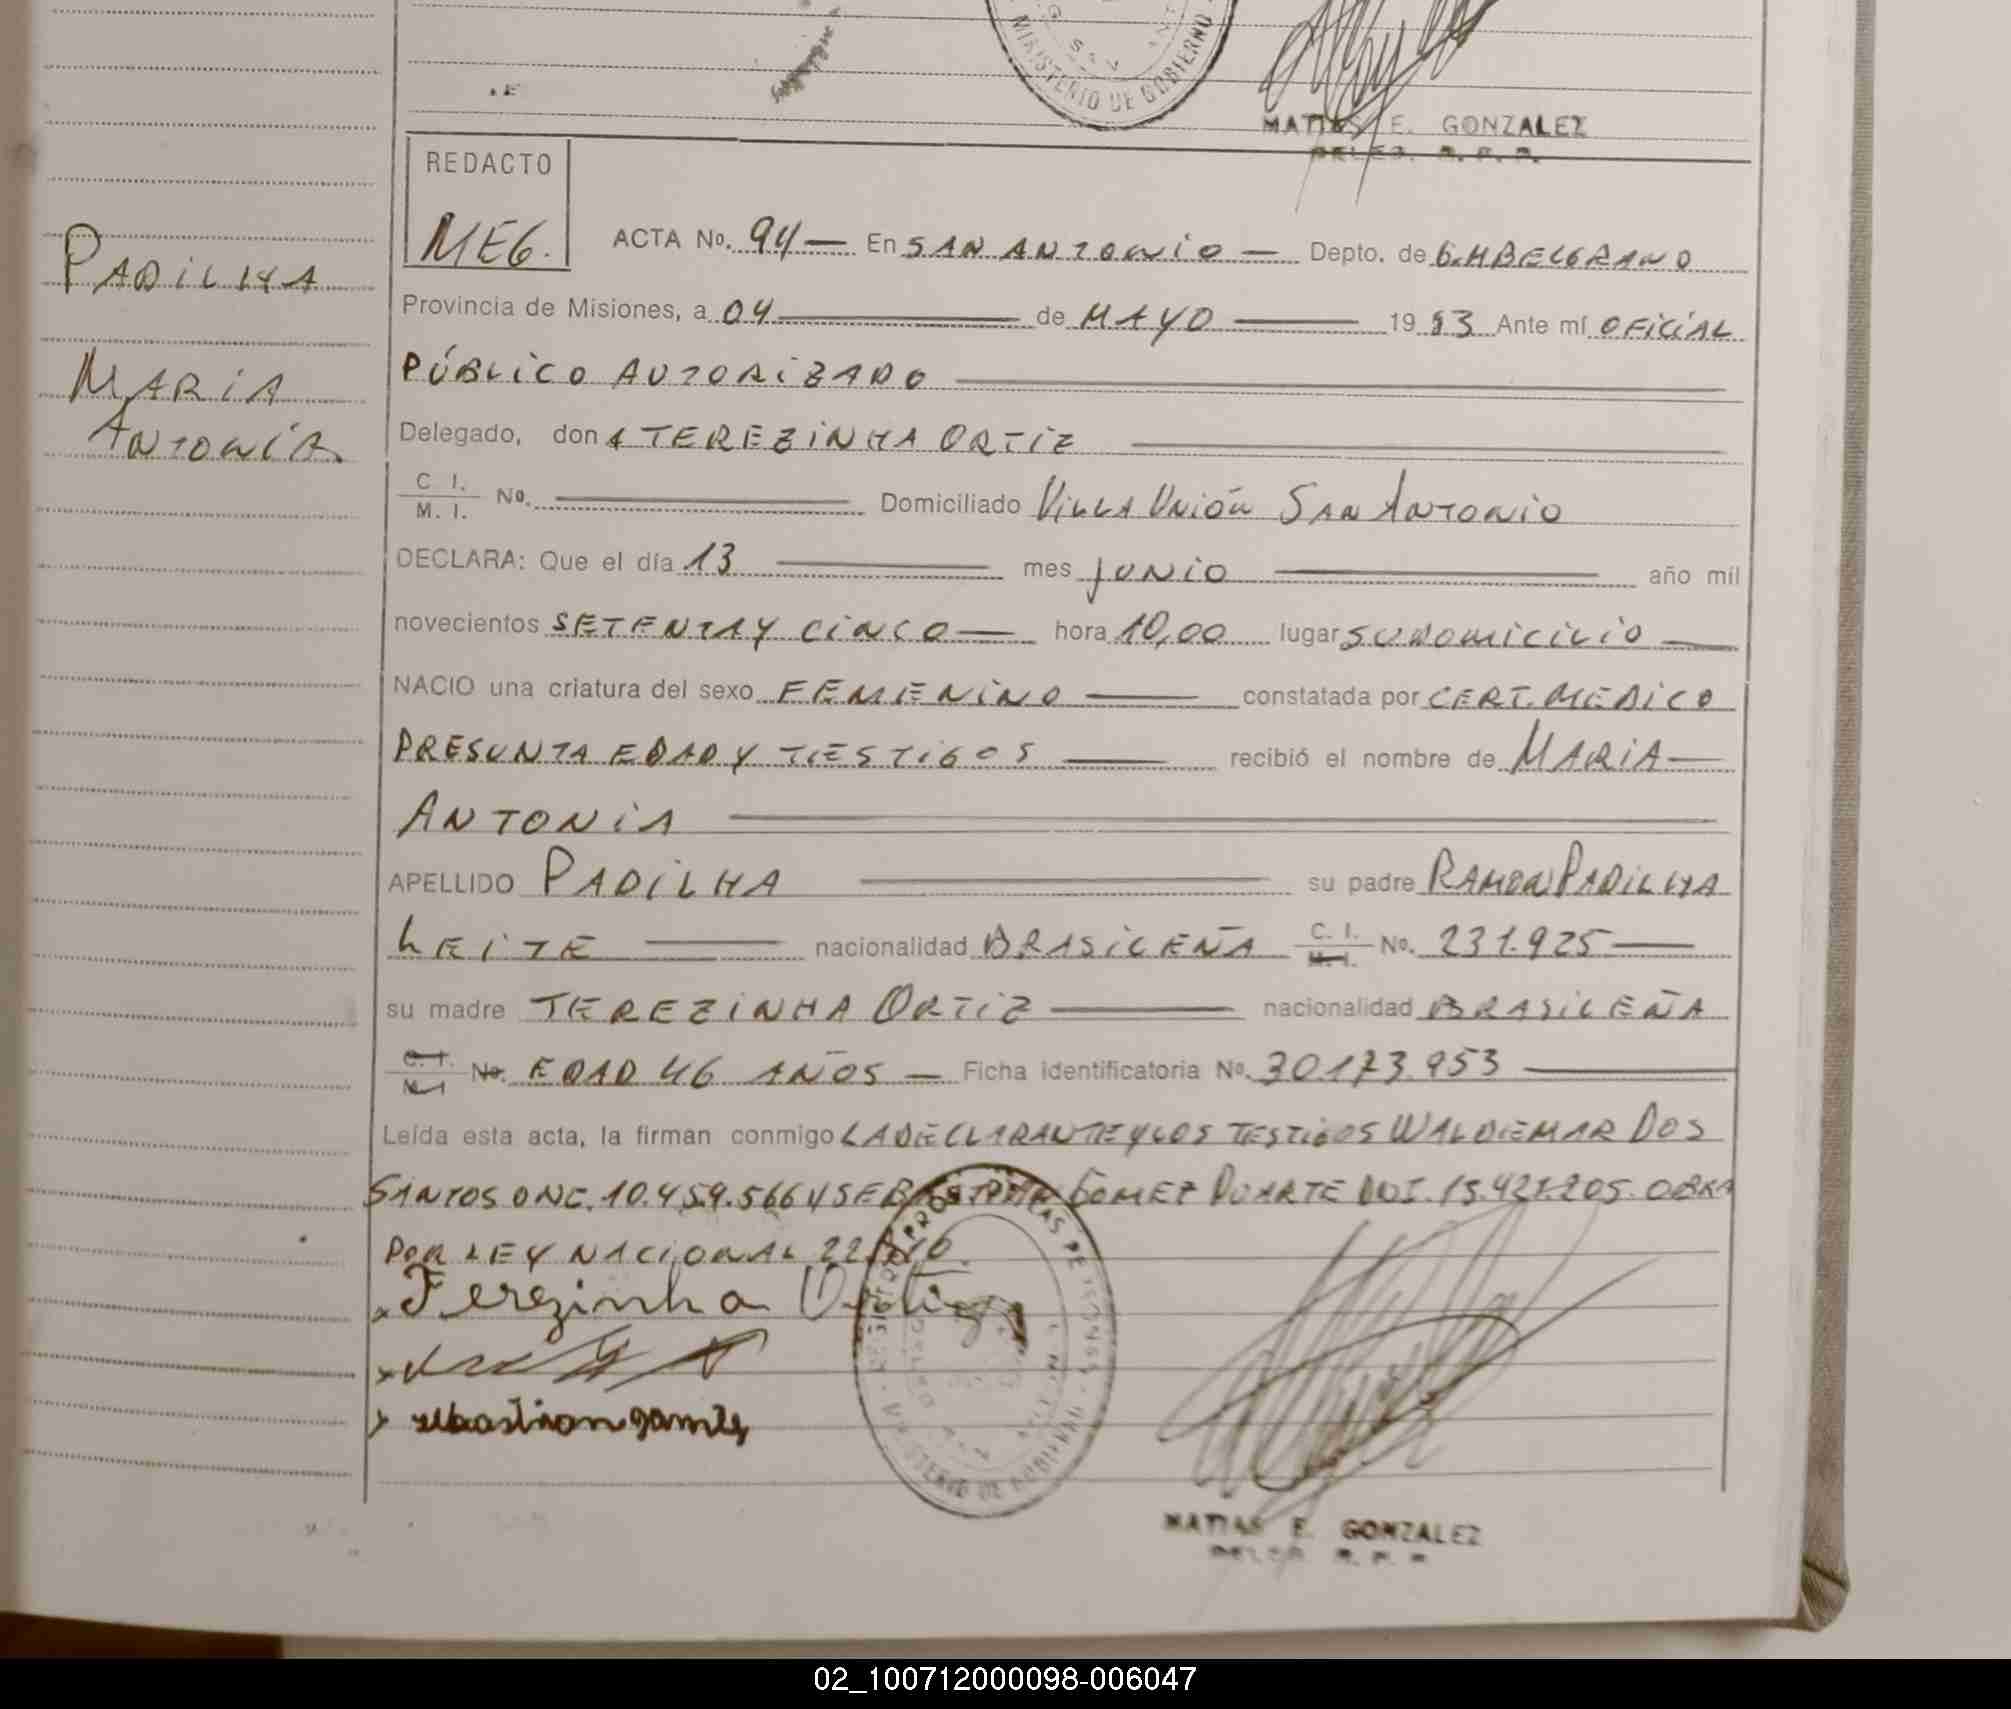 MINISTERIO DE GOBIERNO
MATIAS E. GONZALEZ
DELEG. R. P. P.
REDACTO
MEG.
ACTA No. 94 — En SAN ANTONIO — Depto. de G.M BELGRANO
PADILHA
Provincia de Misiones, a 04 de MAYO 19 93 Ante mí OFICIAL
PÚBLICO AUTORIZADO
MARIA
ANTONIA
Delegado, don A TEREZINHA ORTIZ
C. I. / M. I. No. Domiciliado VILLA UNIÓN SAN ANTONIO
DECLARA: Que el día 13 mes JUNIO año mil
novecientos SETENTA Y CINCO — hora 10,00 lugar SU DOMICILIO
NACIO una criatura del sexo FEMENINO constatada por CERT. MEDICO
PRESUNTA EDAD Y TESTIGOS recibió el nombre de MARIA
ANTONIA
APELLIDO PADILHA su padre RAMON PADILHA
LEITE nacionalidad BRASILEÑA C. I. / M. I. No. 231.925
su madre TEREZINHA ORTIZ nacionalidad BRASILEÑA
C. I. / M. I. No. EDAD 46 AÑOS — Ficha identificatoria No. 30.173.953
Leída esta acta, la firman conmigo LA DECLARANTE Y LOS TESTIGOS WALDEMAR DOS
SANTOS DNI. 10.459.566 Y SEBASTIAN GOMEZ DUARTE DNI. 15.421.205. OBRA
POR LEY NACIONAL
Terezinha Ortiz
sebastian gomez
MINISTERIO DE GOBIERNO
MATIAS E. GONZALEZ
DELEG. R. P. P.
02_100712000098-006047